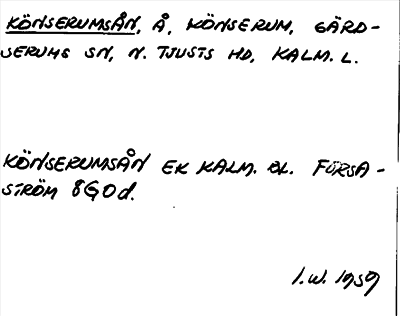 KÖNSERUMSÅN, Å, KÖNSERUM, GÄRD-
SERUMS SN, N. TJUSTS HD, KALM. L.
KÖNSERUMSÅN EK KALM. BL. FORSA-
STRÖM 8G0d.
I.W. 1959